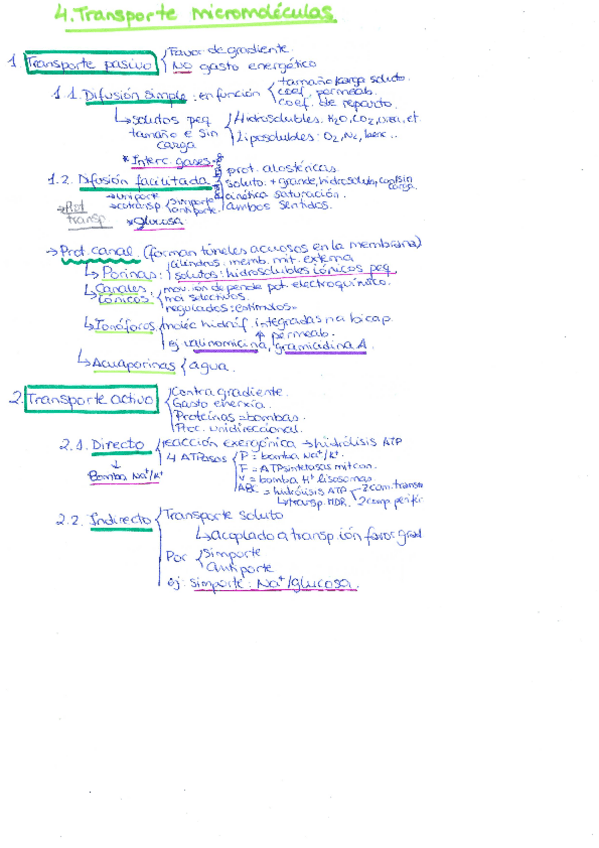 4. Transporte micromoléculas.
1 Transporte pasivo { Favor de gradiente.
NO gasto energético
1.1. Difusión simple: en función { tamaño/carga soluto.
coef. permeab.
coef. de reparto.
↳ solutos peq { Hidrosolubles: H2O, CO2, urea, et
tamaño e sin { Liposolubles: O2, N2, benc...
carga
* Interc. gases
1.2. Difusión facilitada { prot. alostéricas
soluto + grande, hidrosoluble, con/sin carga.
cinética saturación.
ambos sentidos.
→ Prot transp
→ uniporte
→ cotransp { simporte
antiporte
* glucosa
→ Prot. canal (forman túneles acuosos en la membrana)
↳ Porinas: { cilindros. memb. mit. externa
solutos: hidrosolubles iónicos peq
↳ Canales iónicos { mov. ión depende pot. electroquímico.
moi selectivos.
regulados: estímulos
↳ Ionóforos { moléc hidróf. integradas na bicap.
↑ permeab.
ej valinomicina, gramicidina A.
↳ Acuaporinas { agua.
2. Transporte activo { Contra gradiente.
Gasto enerxía.
Proteínas = bombas.
Proc. unidireccional.
2.1. Directo { reacción exergónica → hidrólisis ATP
↓
Bomba Na+/K+
4 ATPasas { P = bomba Na+/K+.
F = ATP sintetasas mitcon.
V = bomba H+ lisosomas
ABC = hidrólisis ATP 2 com. transm
↳ transp. MDR. 2 comp perifé
2.2. Indirecto { Transporte soluto
↳ acoplado a transp. ión favor grad
Por { simporte
antiporte
ej: simporte: Na+/glucosa.